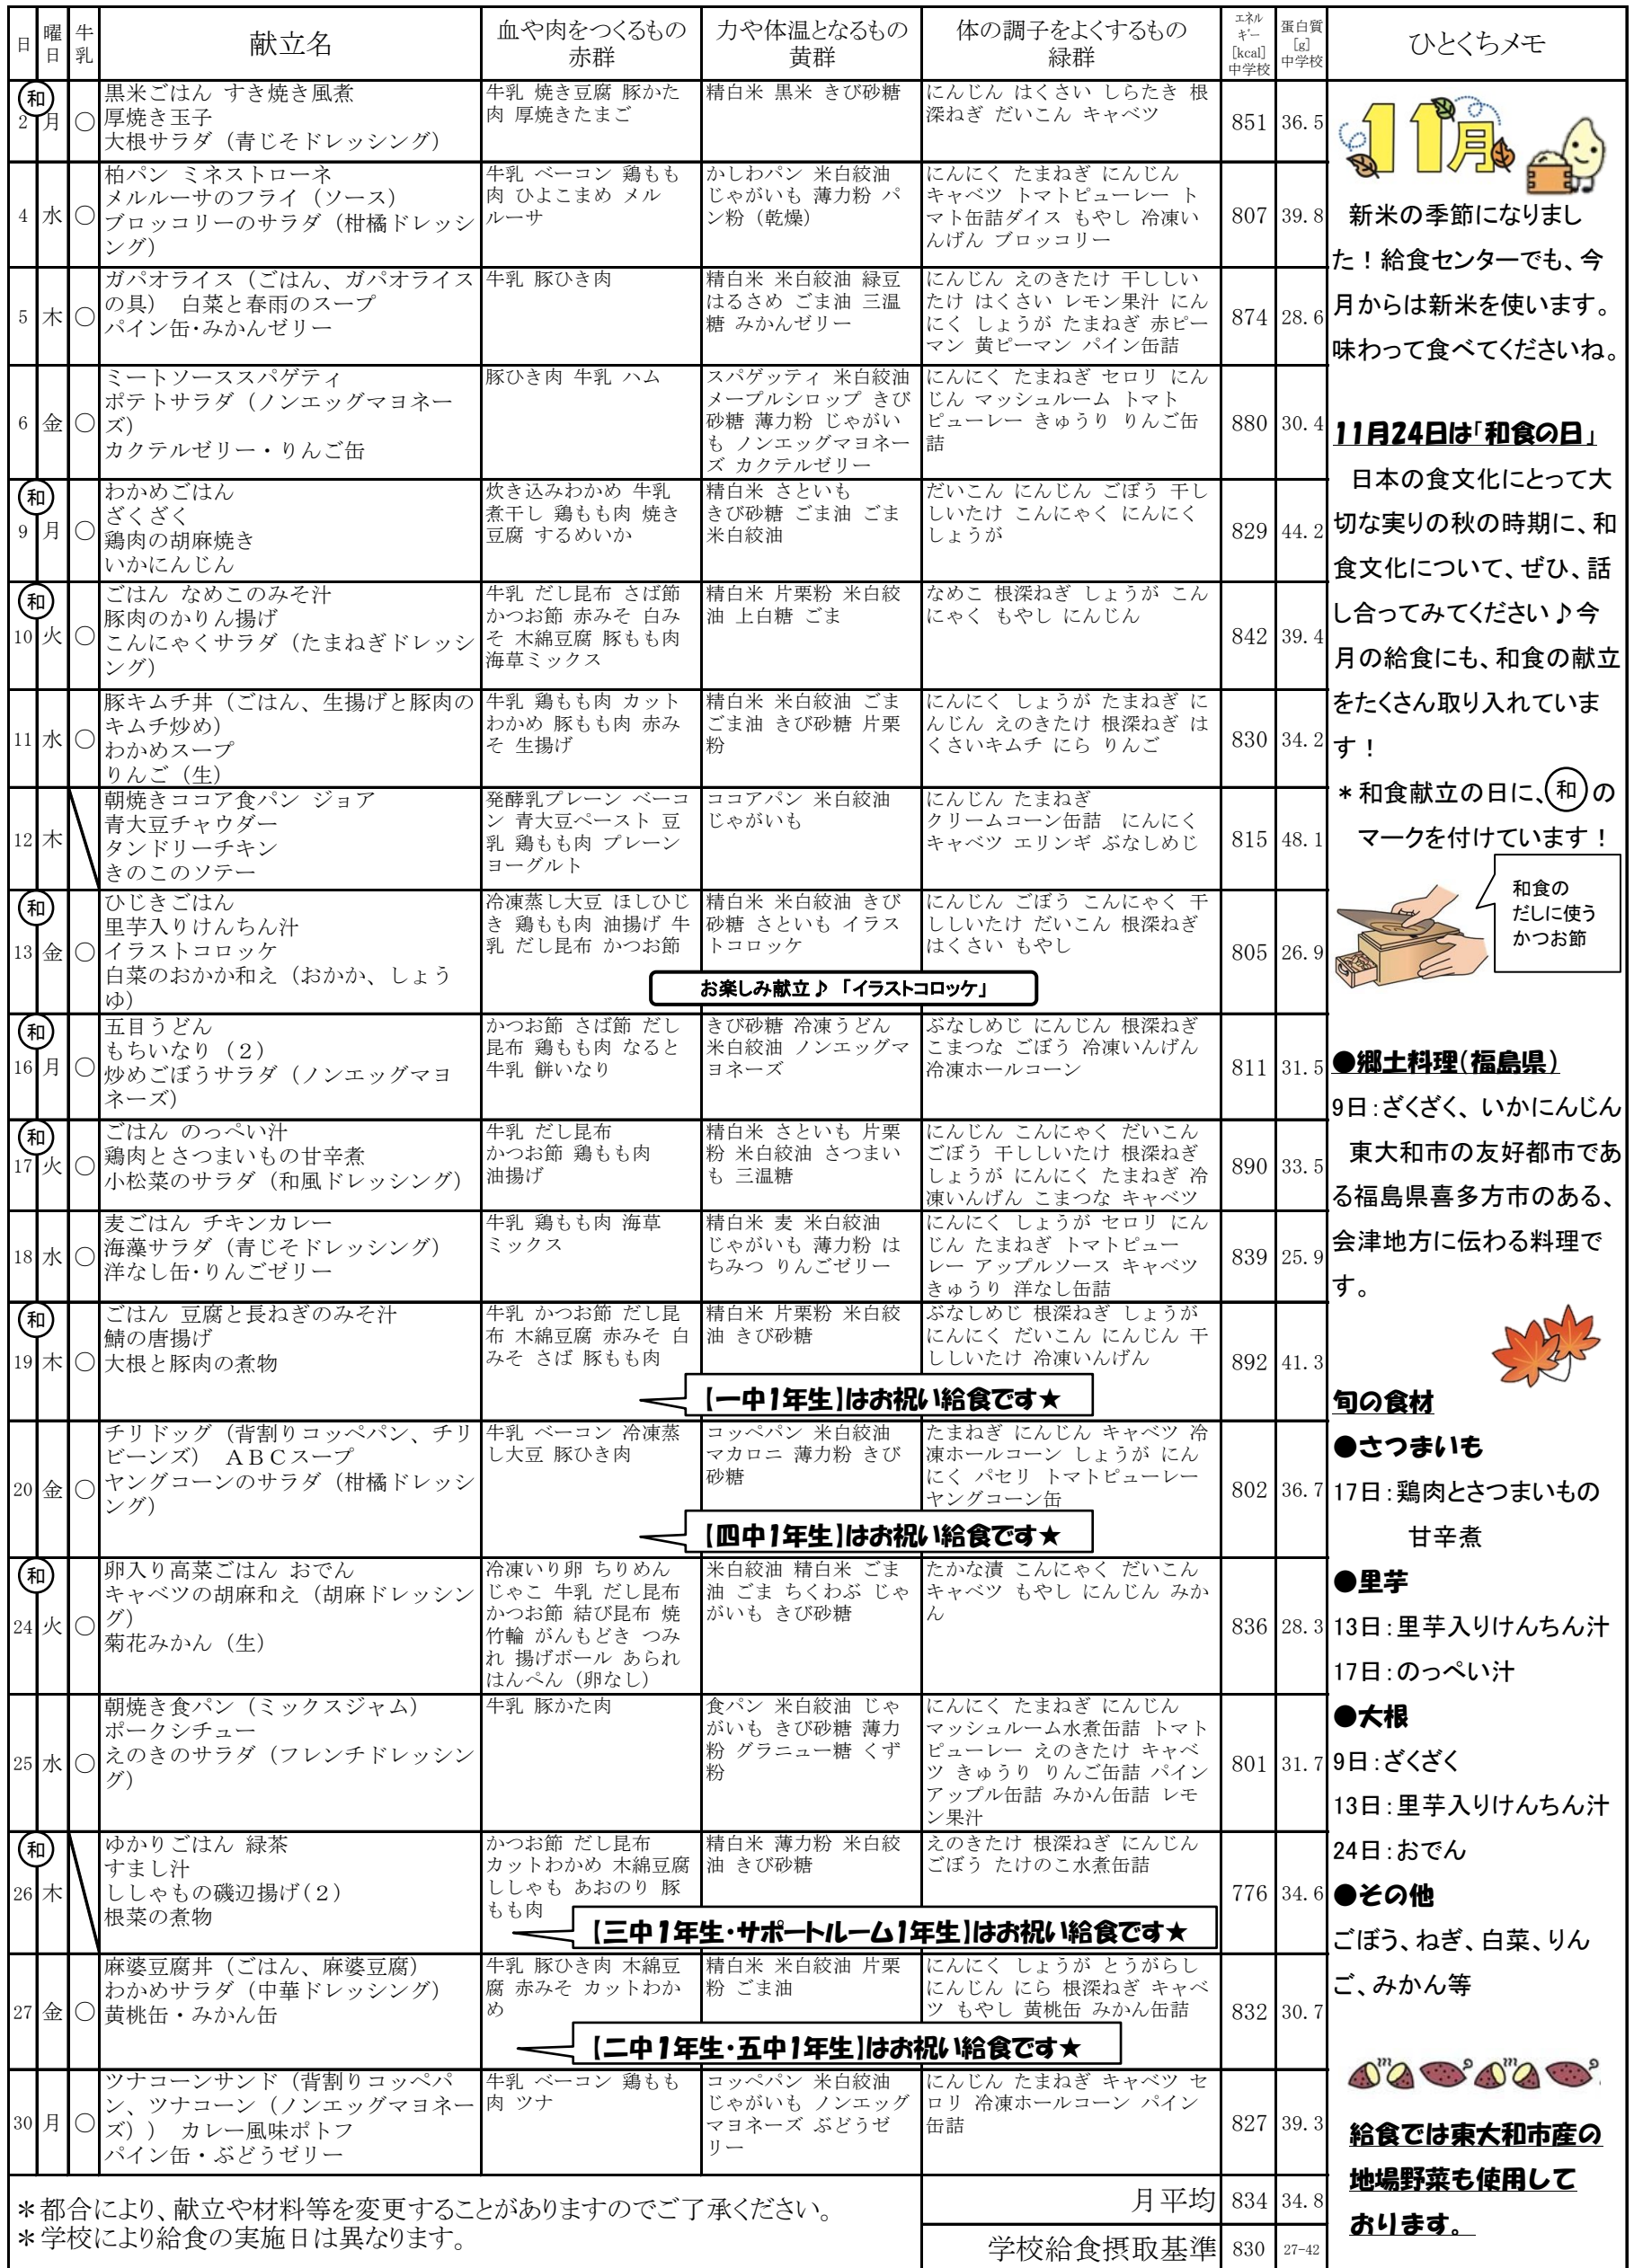 日 曜日 牛乳 献立名 血や肉をつくるもの 赤群 力や体温となるもの 黄群 体の調子をよくするもの 緑群 エネルギー [kcal] 中学校 蛋白質 [g] 中学校 ひとくちメモ
和
2 月 ○
黒米ごはん すき焼き風煮
厚焼き玉子
大根サラダ（青じそドレッシング）
牛乳 焼き豆腐 豚かた
肉 厚焼きたまご
精白米 黒米 きび砂糖
にんじん はくさい しらたき 根
深ねぎ だいこん キャベツ
851 36.5
4 水 ○
柏パン ミネストローネ
メルルーサのフライ（ソース）
ブロッコリーのサラダ（柑橘ドレッシ
ング）
牛乳 ベーコン 鶏もも
肉 ひよこまめ メル
ルーサ
かしわパン 米白絞油
じゃがいも 薄力粉 パ
ン粉（乾燥）
にんにく たまねぎ にんじん
キャベツ トマトピューレー ト
マト缶詰ダイス もやし 冷凍い
んげん ブロッコリー
807 39.8
5 木 ○
ガパオライス（ごはん、ガパオライス
の具） 白菜と春雨のスープ
パイン缶・みかんゼリー
牛乳 豚ひき肉
精白米 米白絞油 緑豆
はるさめ ごま油 三温
糖 みかんゼリー
にんじん えのきたけ 干ししい
たけ はくさい レモン果汁 にん
にく しょうが たまねぎ 赤ピー
マン 黄ピーマン パイン缶詰
874 28.6
6 金 ○
ミートソーススパゲティ
ポテトサラダ（ノンエッグマヨネー
ズ）
カクテルゼリー・りんご缶
豚ひき肉 牛乳 ハム
スパゲッティ 米白絞油
メープルシロップ きび
砂糖 薄力粉 じゃがい
も ノンエッグマヨネー
ズ カクテルゼリー
にんにく たまねぎ セロリ にん
じん マッシュルーム トマト
ピューレー きゅうり りんご缶
詰
880 30.4
和
9 月 ○
わかめごはん
ざくざく
鶏肉の胡麻焼き
いかにんじん
炊き込みわかめ 牛乳
煮干し 鶏もも肉 焼き
豆腐 するめいか
精白米 さといも
きび砂糖 ごま油 ごま
米白絞油
だいこん にんじん ごぼう 干し
しいたけ こんにゃく にんにく
しょうが
829 44.2
和
10 火 ○
ごはん なめこのみそ汁
豚肉のかりん揚げ
こんにゃくサラダ（たまねぎドレッシ
ング）
牛乳 だし昆布 さば節
かつお節 赤みそ 白み
そ 木綿豆腐 豚もも肉
海草ミックス
精白米 片栗粉 米白絞
油 上白糖 ごま
なめこ 根深ねぎ しょうが こん
にゃく もやし にんじん
842 39.4
11 水 ○
豚キムチ丼（ごはん、生揚げと豚肉の
キムチ炒め）
わかめスープ
りんご（生）
牛乳 鶏もも肉 カット
わかめ 豚もも肉 赤み
そ 生揚げ
精白米 米白絞油 ごま
ごま油 きび砂糖 片栗
粉
にんにく しょうが たまねぎ に
んじん えのきたけ 根深ねぎ は
くさいキムチ にら りんご
830 34.2
12 木
朝焼きココア食パン ジョア
青大豆チャウダー
タンドリーチキン
きのこのソテー
発酵乳プレーン ベーコ
ン 青大豆ペースト 豆
乳 鶏もも肉 プレーン
ヨーグルト
ココアパン 米白絞油
じゃがいも
にんじん たまねぎ
クリームコーン缶詰 にんにく
キャベツ エリンギ ぶなしめじ
815 48.1
和
13 金 ○
ひじきごはん
里芋入りけんちん汁
イラストコロッケ
白菜のおかか和え（おかか、しょう
ゆ）
冷凍蒸し大豆 ほしひじ
き 鶏もも肉 油揚げ 牛
乳 だし昆布 かつお節
精白米 米白絞油 きび
砂糖 さといも イラス
トコロッケ
にんじん ごぼう こんにゃく 干
ししいたけ だいこん 根深ねぎ
はくさい もやし
805 26.9
お楽しみ献立♪ 「イラストコロッケ」
和
16 月 ○
五目うどん
もちいなり（２）
炒めごぼうサラダ（ノンエッグマヨ
ネーズ）
かつお節 さば節 だし
昆布 鶏もも肉 なると
牛乳 餅いなり
きび砂糖 冷凍うどん
米白絞油 ノンエッグマ
ヨネーズ
ぶなしめじ にんじん 根深ねぎ
こまつな ごぼう 冷凍いんげん
冷凍ホールコーン
811 31.5
和
17 火 ○
ごはん のっぺい汁
鶏肉とさつまいもの甘辛煮
小松菜のサラダ（和風ドレッシング）
牛乳 だし昆布
かつお節 鶏もも肉
油揚げ
精白米 さといも 片栗
粉 米白絞油 さつまい
も 三温糖
にんじん こんにゃく だいこん
ごぼう 干ししいたけ 根深ねぎ
しょうが にんにく たまねぎ 冷
凍いんげん こまつな キャベツ
890 33.5
18 水 ○
麦ごはん チキンカレー
海藻サラダ（青じそドレッシング）
洋なし缶・りんごゼリー
牛乳 鶏もも肉 海草
ミックス
精白米 麦 米白絞油
じゃがいも 薄力粉 は
ちみつ りんごゼリー
にんにく しょうが セロリ にん
じん たまねぎ トマトピュー
レー アップルソース キャベツ
きゅうり 洋なし缶詰
839 25.9
和
19 木 ○
ごはん 豆腐と長ねぎのみそ汁
鯖の唐揚げ
大根と豚肉の煮物
牛乳 かつお節 だし昆
布 木綿豆腐 赤みそ 白
みそ さば 豚もも肉
精白米 片栗粉 米白絞
油 きび砂糖
ぶなしめじ 根深ねぎ しょうが
にんにく だいこん にんじん 干
ししいたけ 冷凍いんげん
892 41.3
【一中1年生】はお祝い給食です★
20 金 ○
チリドッグ（背割りコッペパン、チリ
ビーンズ） ＡＢＣスープ
ヤングコーンのサラダ（柑橘ドレッシ
ング）
牛乳 ベーコン 冷凍蒸
し大豆 豚ひき肉
コッペパン 米白絞油
マカロニ 薄力粉 きび
砂糖
たまねぎ にんじん キャベツ 冷
凍ホールコーン しょうが にん
にく パセリ トマトピューレー
ヤングコーン缶
802 36.7
【四中1年生】はお祝い給食です★
和
24 火 ○
卵入り高菜ごはん おでん
キャベツの胡麻和え（胡麻ドレッシン
グ）
菊花みかん（生）
冷凍いり卵 ちりめん
じゃこ 牛乳 だし昆布
かつお節 結び昆布 焼
竹輪 がんもどき つみ
れ 揚げボール あられ
はんぺん（卵なし）
米白絞油 精白米 ごま
油 ごま ちくわぶ じゃ
がいも きび砂糖
たかな漬 こんにゃく だいこん
キャベツ もやし にんじん みか
ん
836 28.3
25 水 ○
朝焼き食パン（ミックスジャム）
ポークシチュー
えのきのサラダ（フレンチドレッシン
グ）
牛乳 豚かた肉
食パン 米白絞油 じゃ
がいも きび砂糖 薄力
粉 グラニュー糖 くず
粉
にんにく たまねぎ にんじん
マッシュルーム水煮缶詰 トマト
ピューレー えのきたけ キャベ
ツ きゅうり りんご缶詰 パイン
アップル缶詰 みかん缶詰 レモ
ン果汁
801 31.7
和
26 木
ゆかりごはん 緑茶
すまし汁
ししゃもの磯辺揚げ(２)
根菜の煮物
かつお節 だし昆布
カットわかめ 木綿豆腐
ししゃも あおのり 豚
もも肉
精白米 薄力粉 米白絞
油 きび砂糖
えのきたけ 根深ねぎ にんじん
ごぼう たけのこ水煮缶詰
776 34.6
【三中1年生・サポートルーム1年生】はお祝い給食です★
27 金 ○
麻婆豆腐丼（ごはん、麻婆豆腐）
わかめサラダ（中華ドレッシング）
黄桃缶・みかん缶
牛乳 豚ひき肉 木綿豆
腐 赤みそ カットわか
め
精白米 米白絞油 片栗
粉 ごま油
にんにく しょうが とうがらし
にんじん にら 根深ねぎ キャベ
ツ もやし 黄桃缶 みかん缶詰
832 30.7
【二中1年生・五中1年生】はお祝い給食です★
30 月 ○
ツナコーンサンド（背割りコッペパ
ン、ツナコーン（ノンエッグマヨネー
ズ）） カレー風味ポトフ
パイン缶・ぶどうゼリー
牛乳 ベーコン 鶏もも
肉 ツナ
コッペパン 米白絞油
じゃがいも ノンエッグ
マヨネーズ ぶどうゼ
リー
にんじん たまねぎ キャベツ セ
ロリ 冷凍ホールコーン パイン
缶詰
827 39.3
＊都合により、献立や材料等を変更することがありますのでご了承ください。
＊学校により給食の実施日は異なります。
月平均 834 34.8
学校給食摂取基準 830 27-42
11月
新米の季節になりまし
た！給食センターでも、今
月からは新米を使います。
味わって食べてくださいね。
11月24日は「和食の日」
日本の食文化にとって大
切な実りの秋の時期に、和
食文化について、ぜひ、話
し合ってみてください♪今
月の給食にも、和食の献立
をたくさん取り入れていま
す！
＊和食献立の日に、和の
マークを付けています！
和食の
だしに使う
かつお節
●郷土料理（福島県）
9日：ざくざく、いかにんじん
東大和市の友好都市であ
る福島県喜多方市のある、
会津地方に伝わる料理で
す。
旬の食材
●さつまいも
17日：鶏肉とさつまいもの
甘辛煮
●里芋
13日：里芋入りけんちん汁
17日：のっぺい汁
●大根
9日：ざくざく
13日：里芋入りけんちん汁
24日：おでん
●その他
ごぼう、ねぎ、白菜、りん
ご、みかん等
給食では東大和市産の
地場野菜も使用して
おります。